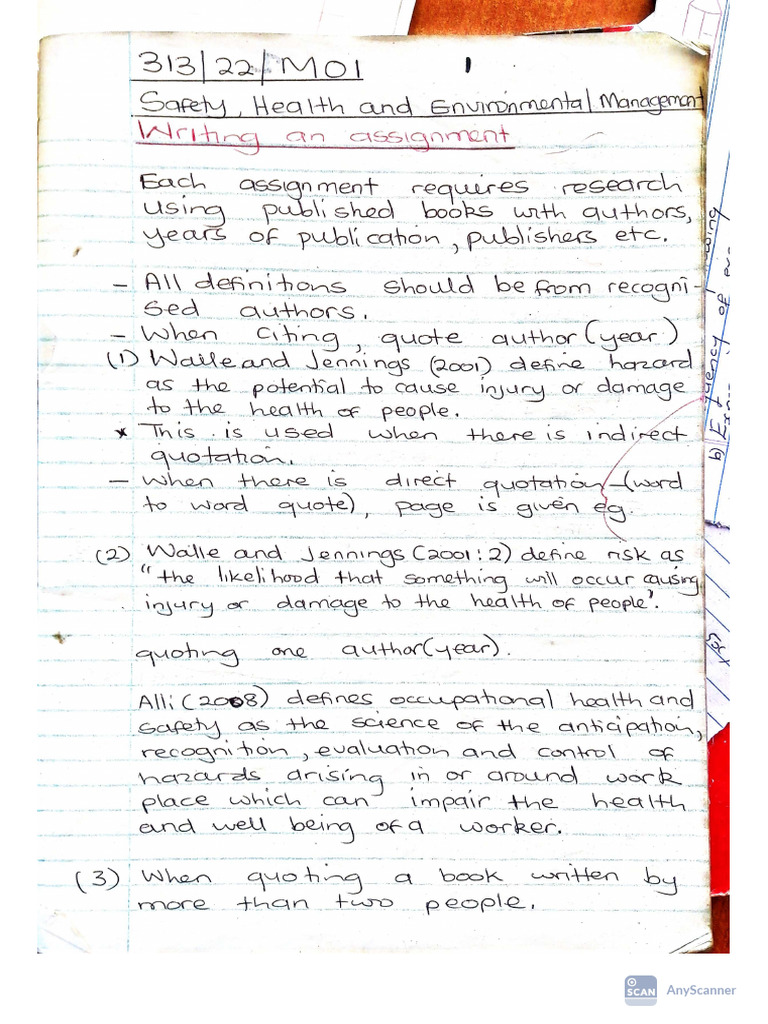 313/22/M01
1
Safety, Health and Environmental Management
Writing an assignment
Each assignment requires research
using published books with authors,
years of publication, publishers etc.
- All definitions should be from recogni-
sed authors.
- When citing, quote author (year)
(1) Walle and Jennings (2001) define hazard
as the potential to cause injury or damage
to the health of people.
* This is used when there is indirect
quotation.
- When there is direct quotation (word
to word quote), page is given eg.
(2) Walle and Jennings (2001:2) define risk as
"the likelihood that something will occur causing
injury or damage to the health of people".
quoting one author (year).
Alli (2008) defines occupational health and
safety as the science of the anticipation,
recognition, evaluation and control of
hazards arising in or around work
place which can impair the health
and well being of a worker.
(3) When quoting a book written by
more than two people.
SCAN
AnyScanner